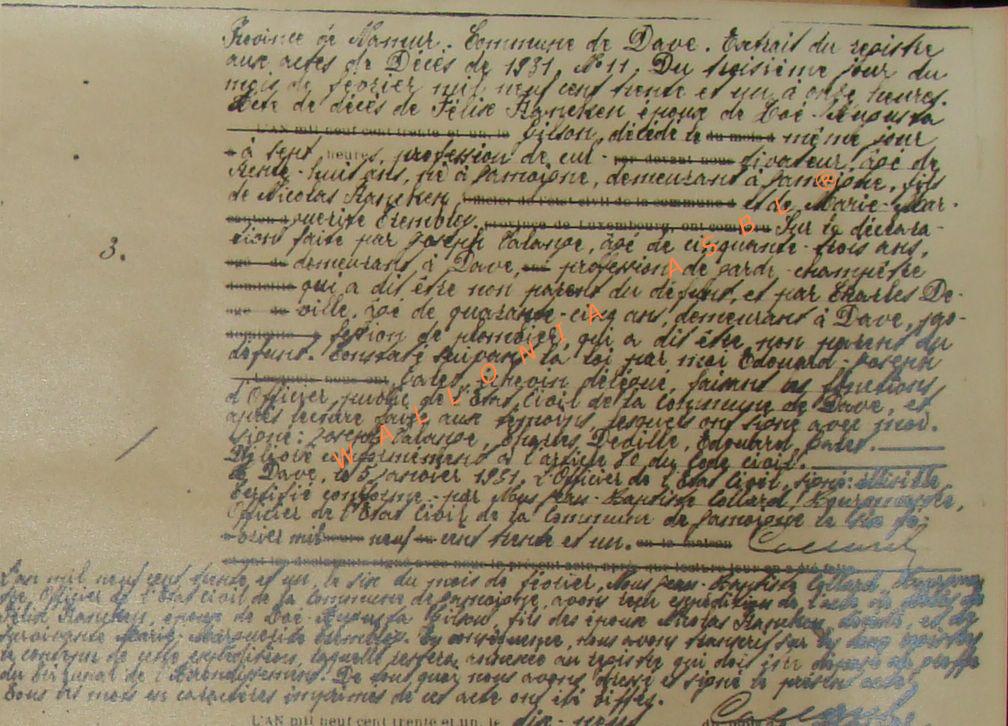 Province de Namur. Commune de Dave. Extrait du registre
aux actes de Décès de 1931. N° 11. Du troisième jour du
mois de février mil neuf cent trente et un à onze heures.
Acte de décès de Félix Kaneken époux de Zoé-Augusta
L'AN mil neuf cent trente et un, le Gilson, décédé le du mois d même jour
à sept heures, profession de cul- par devant nous tivateur, âgé de
trente-huit ans, né à Jamoigne, demeurant à Jamoigne, fils
de Nicolas Kaneken, officier de l'état civil de la commune d et de Marie-Mar-
guerite Tremblez. province de Luxembourg, ont comparu Sur la déclara-
tion faite par Joseph Calande, âgé de cinquante-trois ans,
3.
demeurant à Dave, profession de garde-champêtre
domicilié qui a dit être non parent du défunt, et par Charles De-
ville, âgé de quarante-cinq ans, demeurant à Dave, pro-
fession de plombier, qui a dit être non parent du
défunt. Constaté suivant la loi par moi Edouard-Joseph
Lesquels nous ont échevin délégué, faisant les fonctions
d'Officier public de l'Etat Civil de la Commune de Dave, et
après lecture faite aux témoins, lesquels ont signé avec moi.
signé: Joseph Calande, Charles Deville, Edouard
conformément à l'article 80 du Code civil.
Dave, le 5 1931. L'Officier de l'Etat Civil, signé: illisible
Certifié conforme par Nous Jean-Baptiste Collard, Bourgmestre,
Officier de l'Etat Civil de la Commune de Jamoigne le six fé-
vrier mil neuf cent trente et un. en la maison Collard
L'an mil neuf cent trente et un, le six du mois de février, Nous Jean-Baptiste Collard,
Officier de l'Etat Civil de la Commune de Jamoigne, avons reçu expédition de l'acte de décès de
Félix Kaneken, époux de Zoé-Augusta Gilson, fils des époux Nicolas Kaneken, et de
Marie-Marguerite Tremblez. En conséquence, nous avons transcrit sur les registres
le contenu de cette expédition, laquelle restera annexée au registre qui doit être déposé au greffe
du tribunal de l'arrondissement. De tout quoi nous avons dressé et signé le présent acte.
Tous les mots en caractères imprimés de cet acte ont été biffés. Collard
L'AN mil neuf cent trente et un, le dix-neuf du mois d
WALLONIA ASBL ®